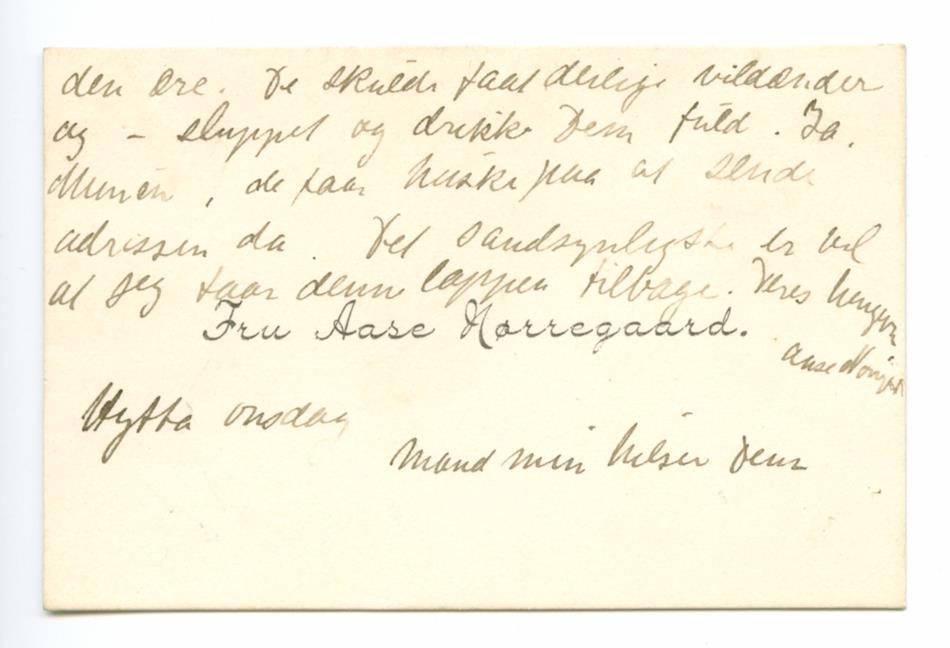 den ære. De skulde faat deilige vildænder
og – sluppet og drikke Dem fuld. Ja,
Munch, de faar huske paa at sende
adressen da. Det sandsynligste er vel
at jeg faar denne lappen tilbage. Deres hengivne
Aase Nørreg
Fru Aase Nørregaard.
Hytta onsdag
Mand min hilser Dem